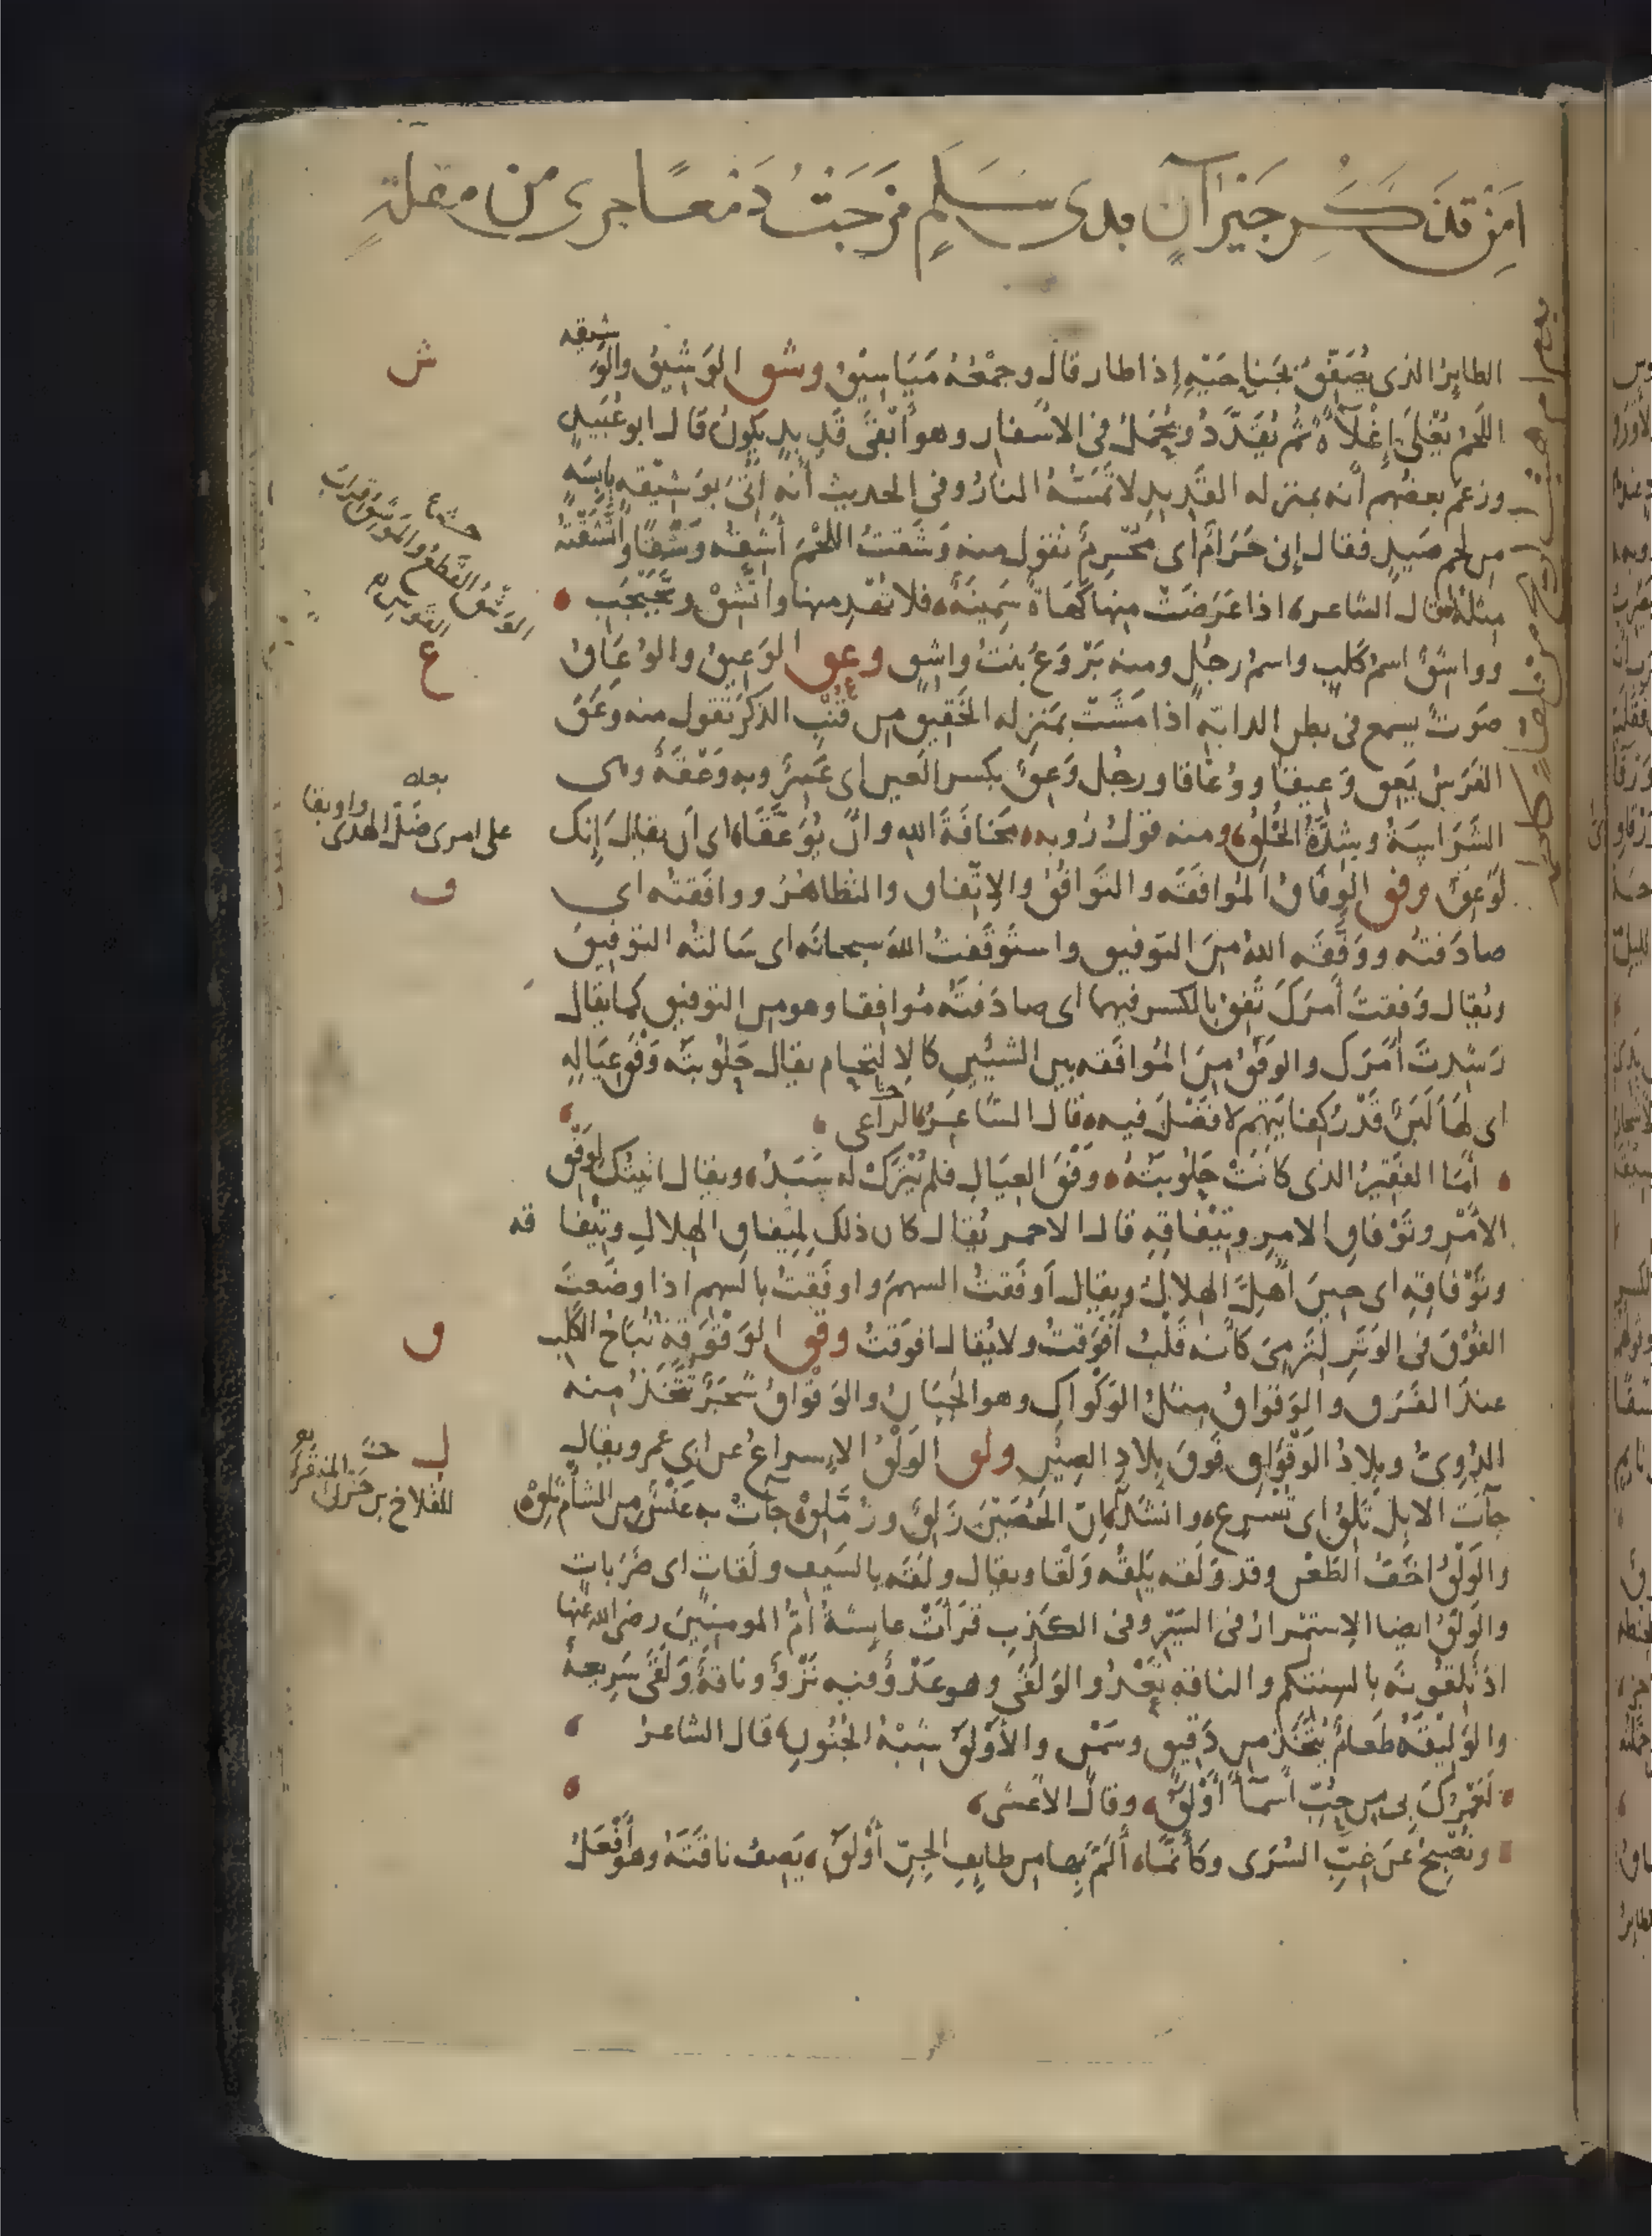 امن تذكر جيران بذى سلم مزجت دمعا جرى من مقلة
الطاير الذى يُصَفِّقُ بجناحَيْهِ اذا طار قال وجَمْعُهُ مَيَاسِيْقُ وشق الوَشِيْقُ والوَشيقه
اللحم يُغْلَى إغْلآءً ثم يُقَدَّدُ ويُحْمَلُ فى الاسْفار وهو أبْقَى قَدِيدٍ يكونُ قال ابو عُبَيدٍ
وزعَم بعضُهم أنه بمنزله القَديدِ لا تَمَسّهُ النارُ وفى الحديث أنه اُتِىَ بوَشيْقه يابِسَةٍ
من لحم صَيدٍ فقال إنى حَرَامٌ اى مُحْرِمٌ تقول منه وَشَقْتُ اللحْمَ أشِقُه وَشْقًا واتَّشَقْتُه
مثله قال الشاعر اذا عَرَضَتْ منها كَهَاةٌ سَمِينَةٌ فلا تُهْدِ منها واتَّشِقْ وتَجَبْجَبِ
وواشقٌ اسمُ كَلبٍ واسمُ رجُلٍ ومنه بَرْوَعُ بنتُ واشِقٍ وعق الوَعِيقُ والوُعَاقُ
صَوتٌ يسمع فى بطن الدابّه اذا مَشَتْ بمَنزِله الخَقِيقِ من قُنْبِ الذكَر تقول منه وَعَقَ
الفَرَسُ يَعِقُ وَعِيقًا ووُعَاقا ورجُل وَعِقٌ بكسر العَين اى عَسِرٌ وبه وَعْقَةٌ وهى
الشَرَاسَةُ وشِدَّةُ الخُلُقِ ومنه قولُ رُوبه مَخافَةَ اللهِ وانْ يُوَعَّقَا اى ان يقال إنك
لَوَعِقٌ وفق الوِفَاقُ المُوافقَه والتوَافُقُ والاِتّفاق والتظاهُرُ ووافَقتُه اى
صادَفتُه ووَفَّقَه اللهُ من التوفيق واستَوفَقتُ اللهَ سبحانَه اى سَالتُه التوفيقَ
ويُقال وَفِقتَ أمرَكَ تَفِقُ بالكسر فيهما اى صادَفتَه مُوافِقا وهو من التوفيق كما يقال
رَشِدتَ أمْرَكَ والوَفْقُ منَ المُوافَقه بين الشيئين كالاِلتحام يقال حَلُوبَتُه وَفْقُ عِيَالهِ
اى لها لَبَنٌ قَدْرُ كِفايَتِهم لا فَضْلَ فيه قال الشاعر الراعى
أمّا الفقيرُ الذى كانتْ حَلُوبَتُهُ وَفْقَ العِيَالِ فلم يُتْرَكْ له سَبَدُ ويقال اتيتك لِوَفْقِ
الأمْرِ وتَوْفَاقِ الامرِ وتِيْفَاقِهِ قال الاحمر يُقال كان ذلك لِمِيفاق الهِلالِ وتِيْفاقه
وتَوْفَاقِهِ اى حِينَ أُهِلَّ الهلالُ ويقال أوفَقتُ السهمَ واوفَقتُ بالسهم اذا وضَعتَ
الفُوْقَ فى الوَتَرِ لِتَرمِىَ كانه قَلْبُ أفْوَقتُ ولا يُقال افوَقتُ وقق الوَقْوَقهُ نُباحُ الكَلب
عندَ الفَرَق والوَقْوَاقُ مثلُ الوَكْوَاك وهو الجَبَانُ والوَقْوَاقُ شجَرٌ تُتَّخَذُ منه
الدُوِىُّ وبِلادُ الوَقْوَاقِ فَوقَ بِلادِ الصِيْنِ ولق الوَلْقُ الاِسراعُ عن ابى عمرو يقال
جآت الابِلُ تَلِقُ اى تُسرِعُ وانشَدَ انّ الحُصَيْنَ زَلِقٌ وزُمَّلِقْ جاتْ به عَنْسٌ من الشام تَلِقْ
والوَلْقُ اخَفُّ الطَعْن وقد وَلَقه يَلِقُه وَلْقا ويقال ولَقَه بالسَيف ولَقات اى ضَرَباتٍ
والوَلْقُ ايضا الاِستِمْرارُ فى السَيْرِ وفى الكَذِبِ قرَأتْ عايِشةُ أمُّ المومنِينَ رضى الله عنها
اذ تَلِقُونَه بالسنتكم والناقه تَعْدُو الوَلَقَى وهو عَدْوٌ فيه نَزْوٌ وناقةٌ وَلَقَى سَرِيعةٌ
والوَلِيقَةُ طَعامٌ يُتّخَذ من دَقِيقٍ وسَمْنٍ والأوْلَقُ شِبْهُ الجُنُونِ قال الشاعر
لَعَمْرُكَ بى من حُبّ أسْمآءَ أوْلَقُ وقال الأعشى
وتُصْبِحُ عَن غِبّ السُرَى وكأنّما ألَمّ بِها من طايِفِ الجِنّ أوْلَقُ يَصِفُ ناقَتَهُ وهو أفْعَلُ
ش
حشية
الوَشْقُ القَطعُ والمُوَاشِقُ
ع
بعده
على امرئ ضَلّ الهُدى واوبقا
ف
ق
ل
حش
للقلاخ بن حَزْن المنقرى